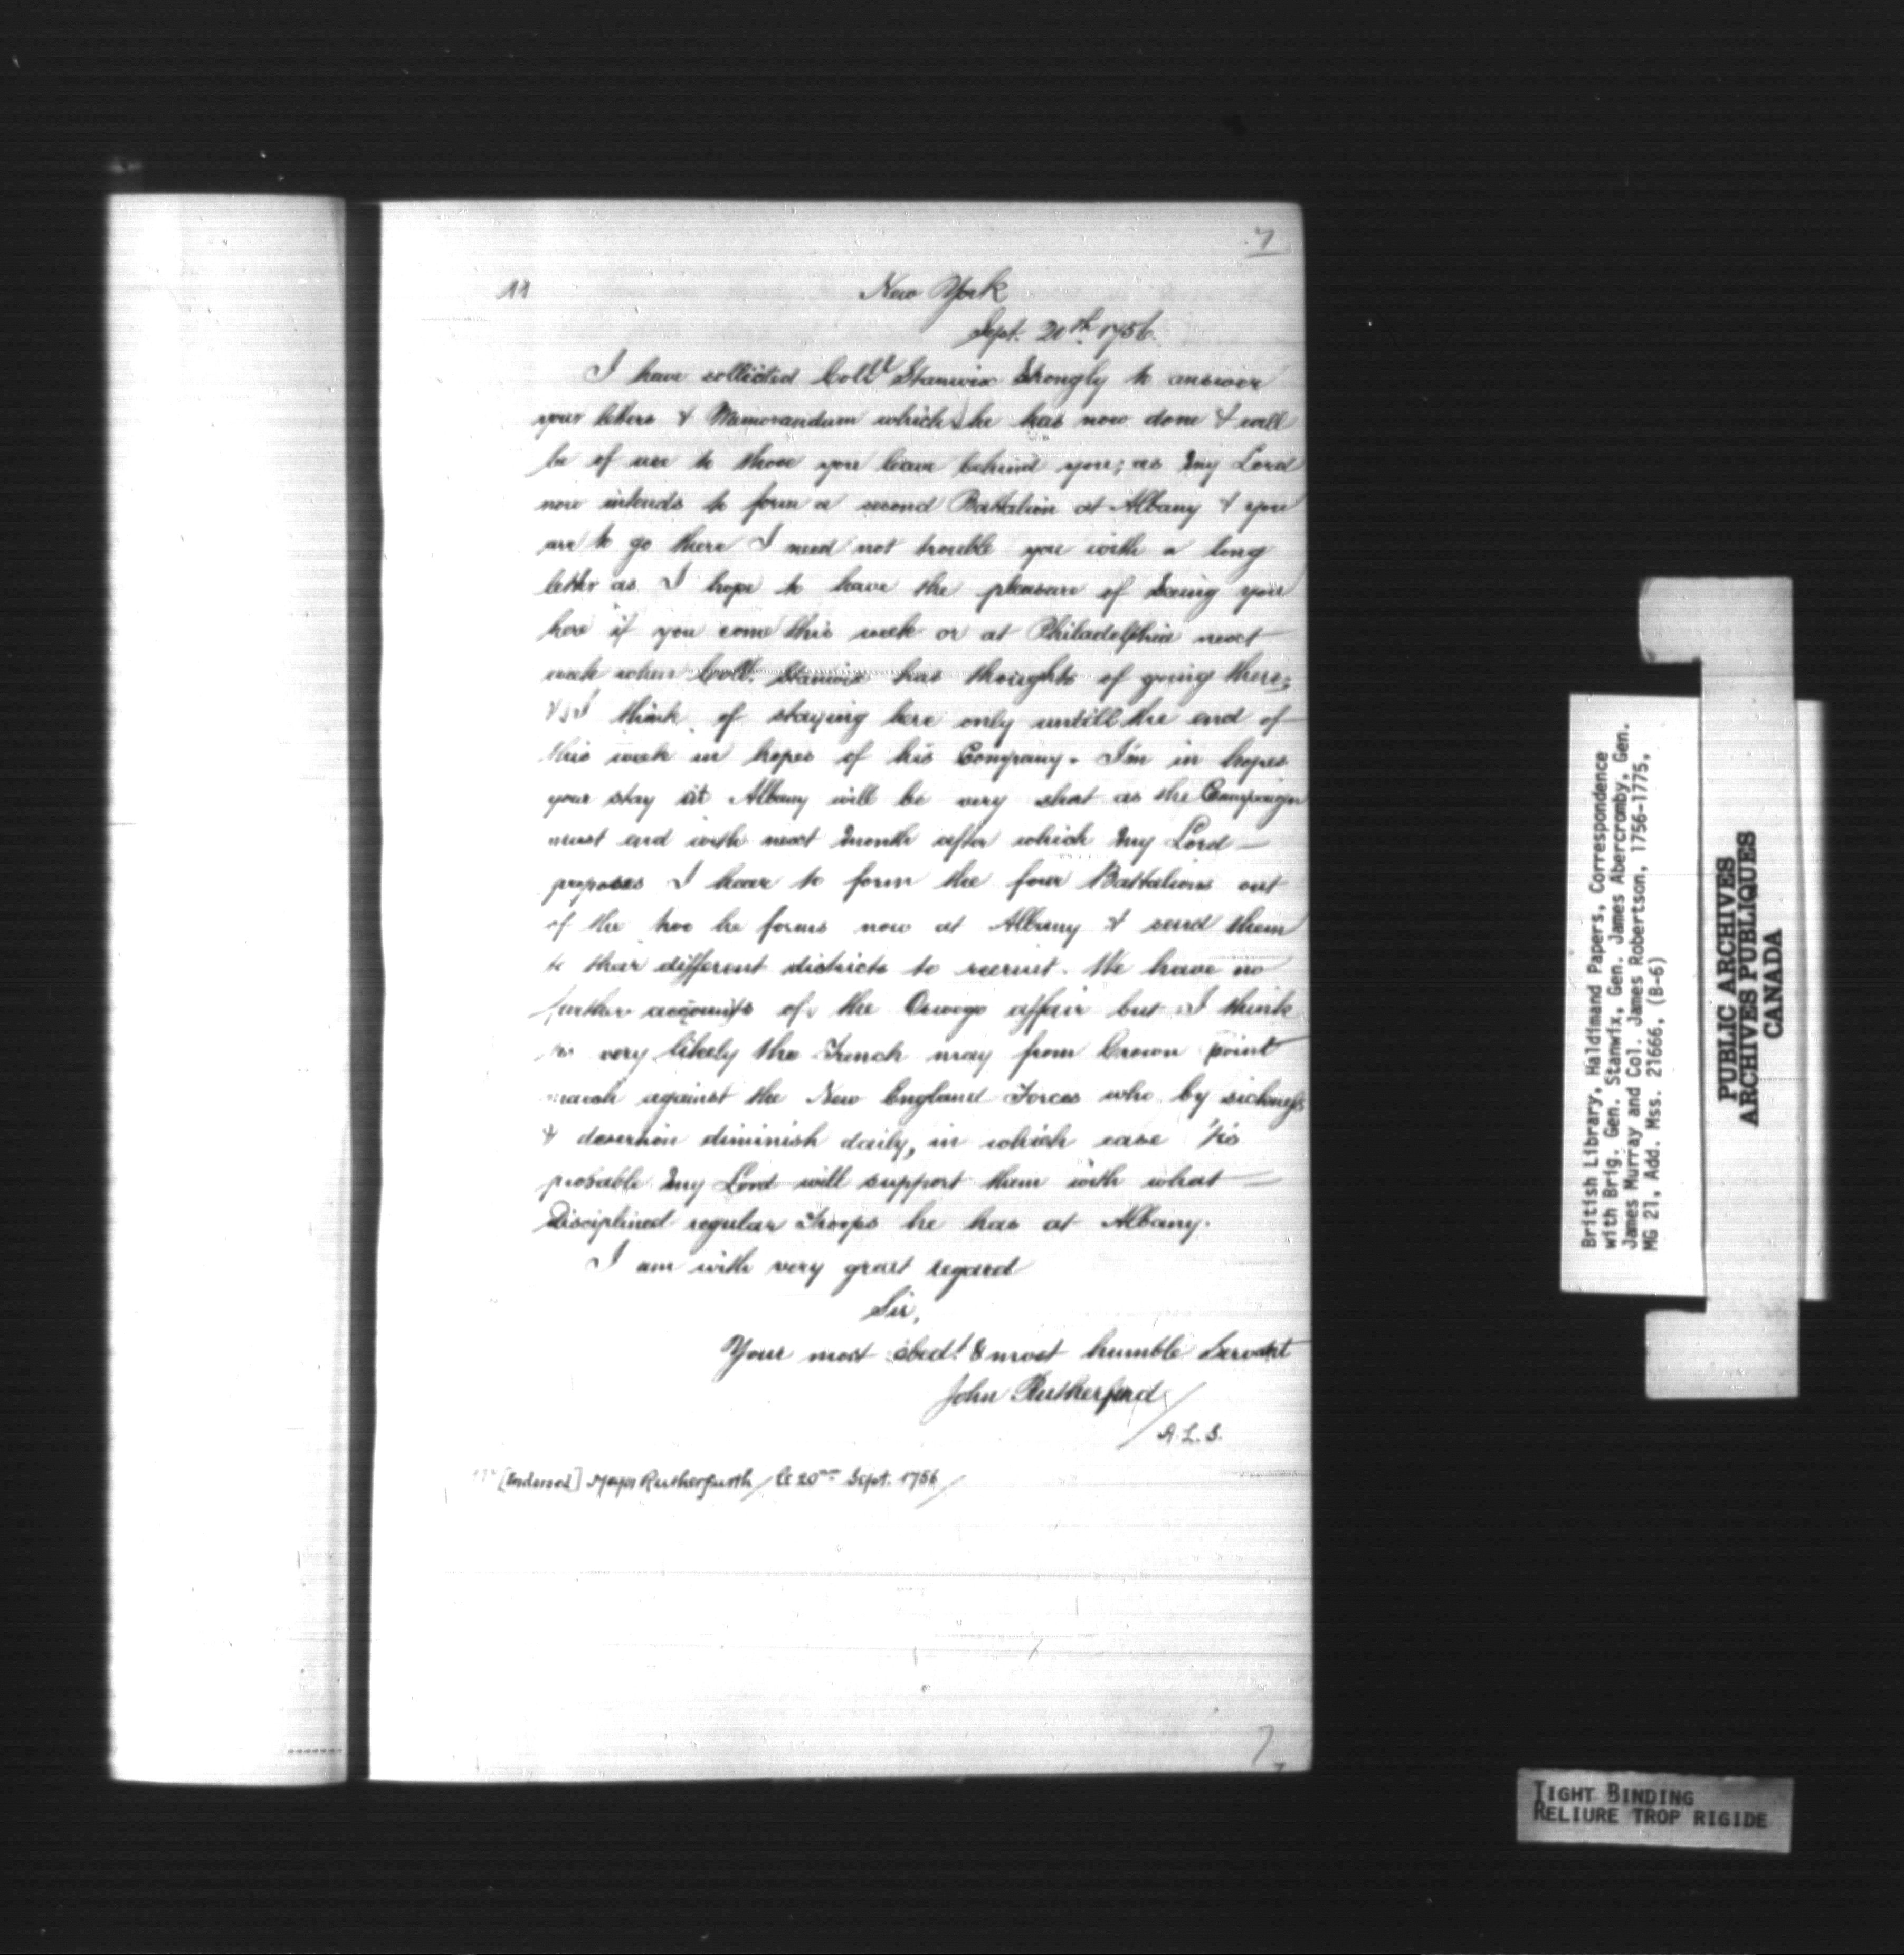 7
11
New York
Sept. 20th 1756.
I have sollicited Coll.l Stanwix Strongly to answer
your letters & Memorandum which he has now done & will
be of use to those you leave behind you; as My Lord
now intends to form a second Battalion at Albany & you
are to go there I need not trouble you with a long
letter as I hope to have the pleasure of Seeing you
here if you come this week or at Philadelphia next
week when Coll. Stanwix has thoughts of going there;
& I think of staying here only untill the end of
this week in hopes of his Company. I'm in hopes
your stay at Albany will be very short as the Campaign
must end with next Month after which My Lord
proposes I hear to form the four Battalions out
of the two he forms now at Albany & send them
to their different districts to recruit. We have no
further accounts of the Oswego affair but I think
very likely the French may from Crown point
march against the New England Forces who by sickness
& desertion diminish daily, in which case 'tis
probable My Lord will support them with what
Disciplined regular Troops he has at Albany.
I am with very great regard
Sir,
Your most obedt. & most humble Servant
John Rutherfurd
A. L. S.
[Endorsed] Major Rutherfurth / le 20me Sept. 1756 /
7
British Library, Haldimand Papers, Correspondence
with Brig. Gen. Stanwix, Gen. James Abercromby, Gen.
James Murray and Col. James Robertson, 1756-1775,
MG 21, Add. Mss. 21666, (B-6)
PUBLIC ARCHIVES
ARCHIVES PUBLIQUES
CANADA
TIGHT BINDING
RELIURE TROP RIGIDE